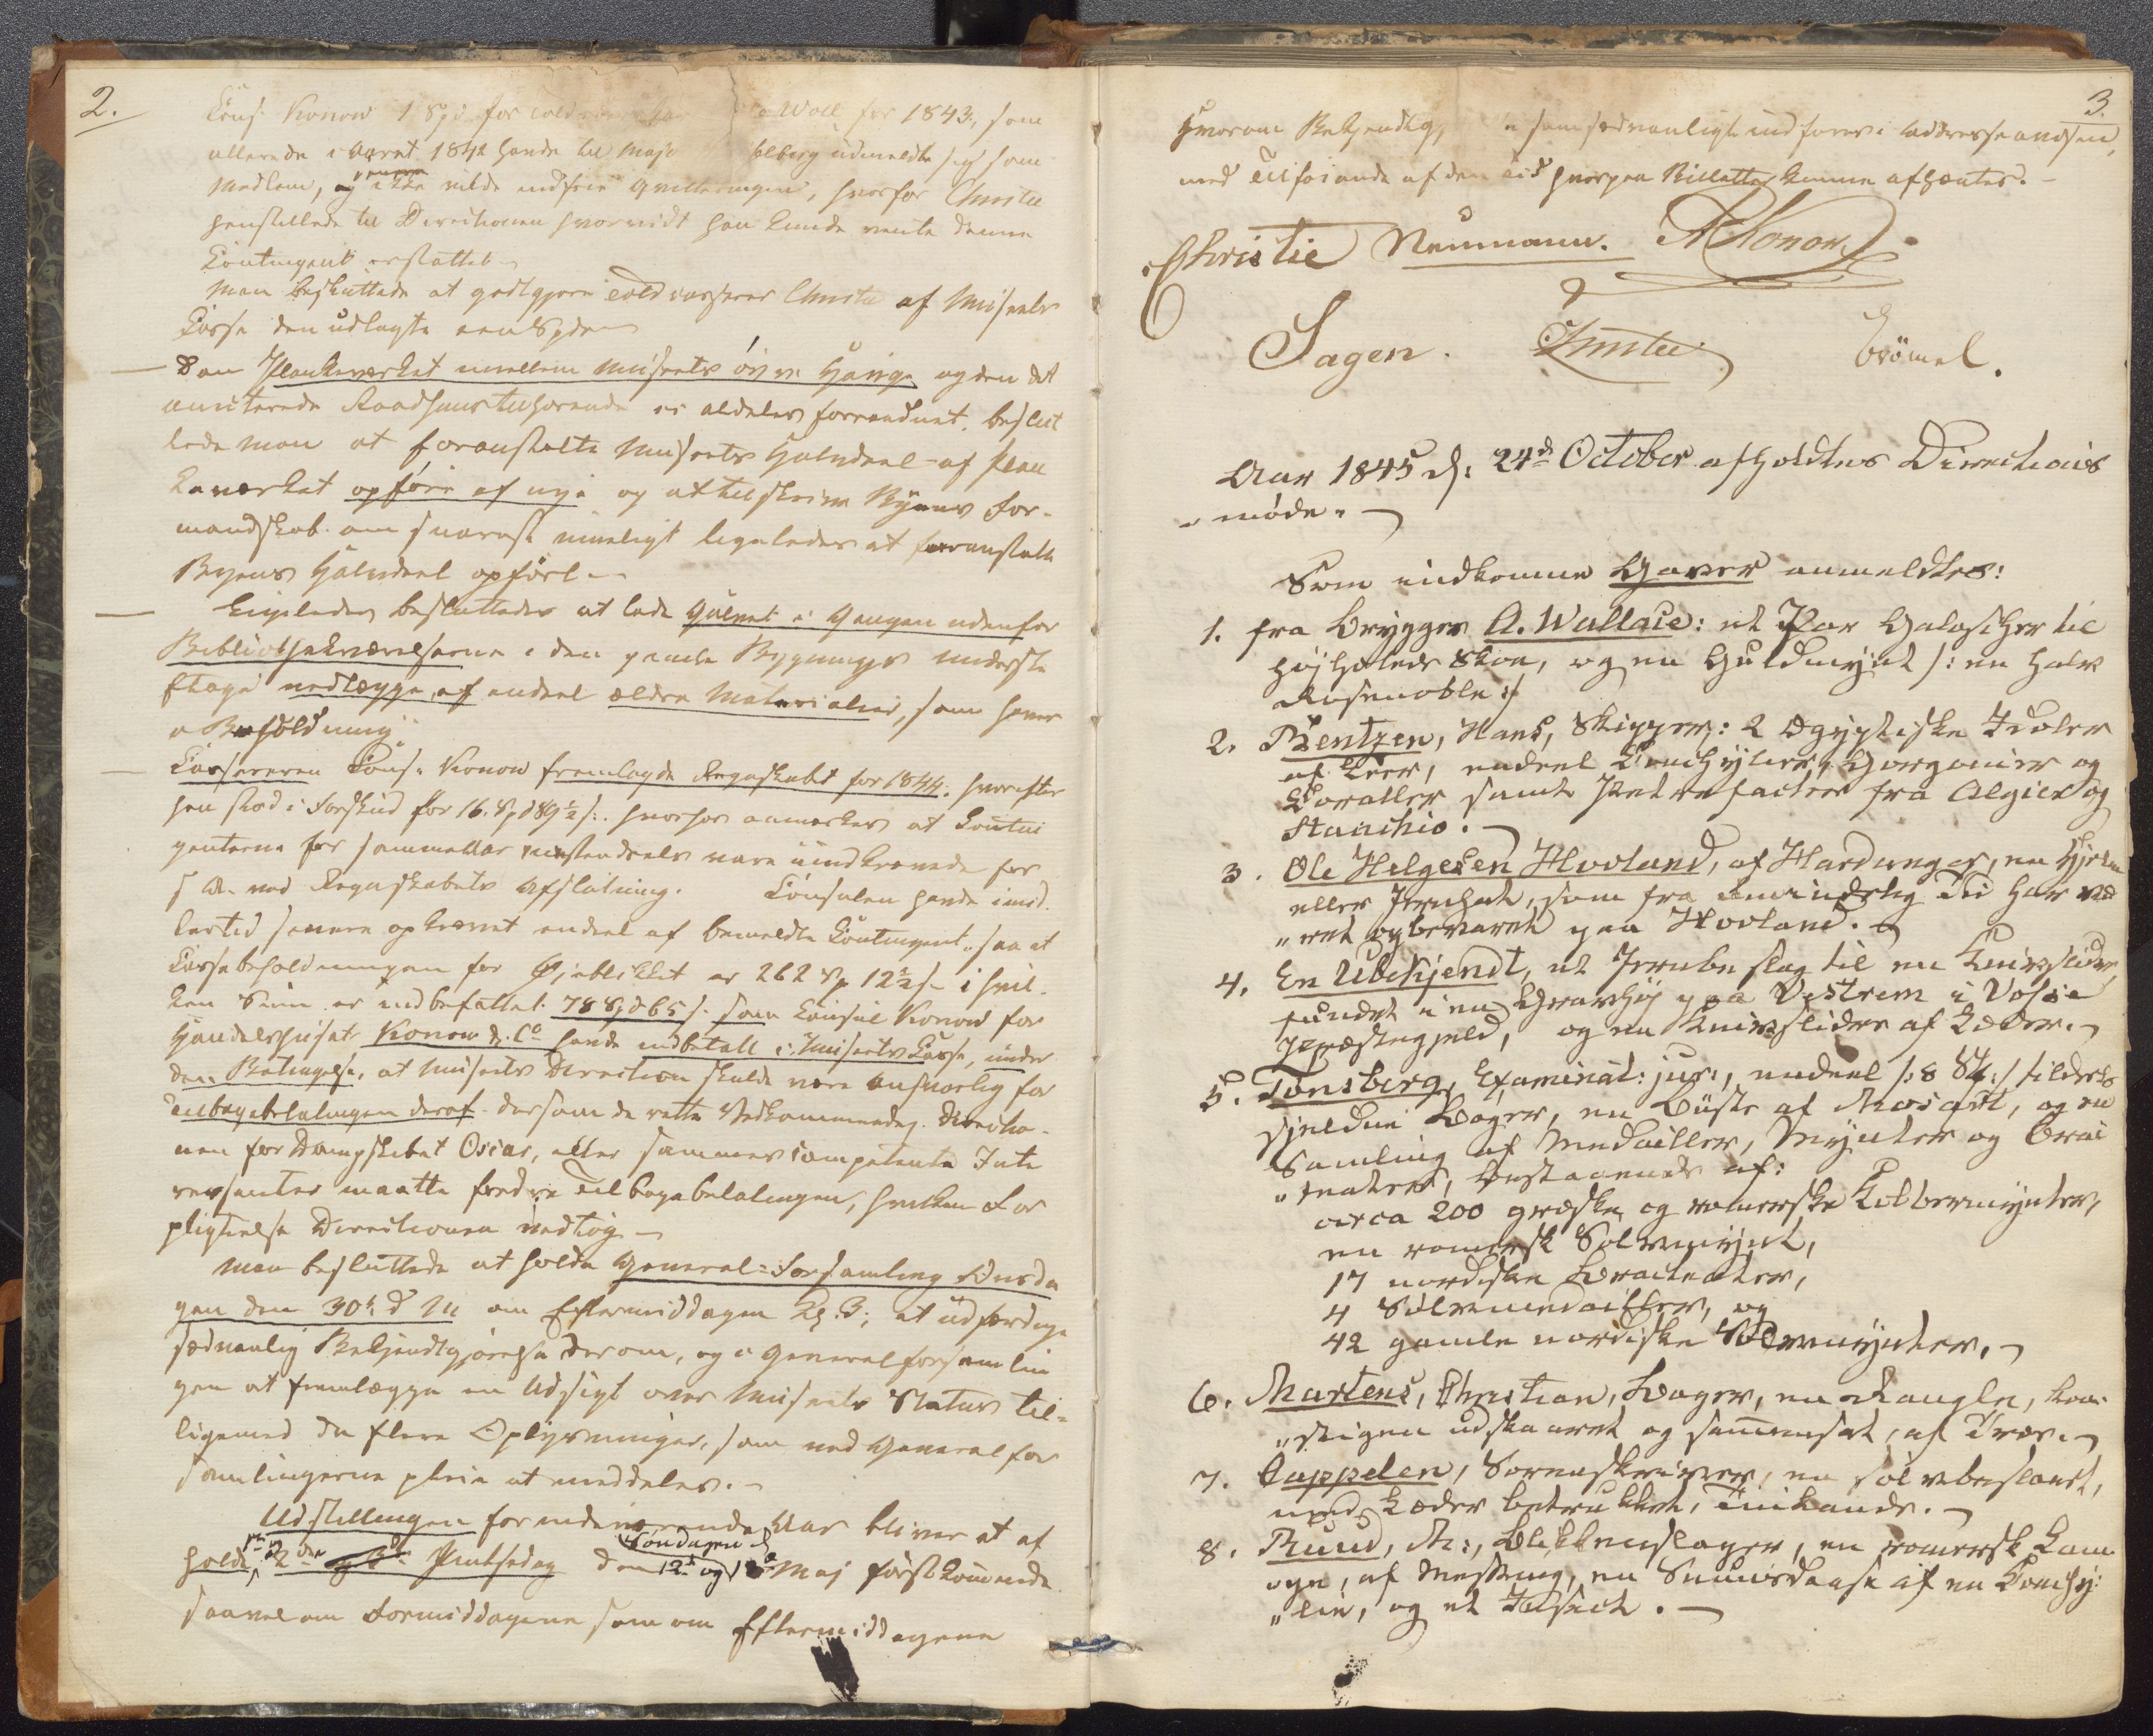 2.
Cons: Konow 1 Spd for Woll for 1843, som
allerede i Aaret 1842 havde til udmeldte sig som
Medlem, og ikke vilde indfrie Qvitteringen, hvorfor Christie
henstillede til Directionen hvorvidt han kunde vente denne
Contingent erstattet
Man besluttede at godtgjøre Christie af Museets
Casse den udlagte een Spd
Da Plankeværket mellem Museets øvre Hauge og den det
Raadhuus tilhørende er aldeles forraadnet, beslut
tede man at foranstalte Museets Halvdeel af Plan
keværket opføre af nye og at tilskrive Byens For-
mandskab om snarest mueligt ligeledes at foranstalte
Byens Halvdeel opført
Ligeledes besluttedes at lade Gulvet i Gangen udenfor
Bibliothekværelserne i den gamle Bygnings underste
Etage nedlægge af endeel ældre Materialier, som haves
i Beholdning
Cassereren Cons: Konow fremlagde Regnskabet for 1844, hvorefter
han stod i Forskud for 16 Spd 89½ s:. hvorhos anmærkes at Contin
genterne for samme Aar meestendeels vare uindkrævede for
s A. ved Regnskabets Afslutning. Consulen havde imid-
lertid senere opkrævet endeel af bemeldte Contingent, saa at
Cassebeholdningen for Øjeblikket er 262 Sp 12½ s i hvil-
ken Sum er indbefattet 78 Spd 65 s. som Consul Konow for
Handelshuset Konow & Co havde indbetalt i Museets Casse, under
den Betingelse, at Museets Direction skulde være ansvarlig for
Tilbagebetalingen deraf dersom de rette Vedkommende, Directio-
nen for Dampskibet Oscar, eller sammes competente Inte
ressenter maatte fordre Tilbagebetalingen, hvilken For
pligtelse Directionen vedtog
Man besluttede at holde General-Forsamling Onsda
gen den 30te d M om Eftermiddagen Kl. 3, at udfærdige
sædvanlig Bekjendtgjørelse derom, og i Generalforsamlin
gen at fremlægge en Udsigt over Museets Status til-
ligemed de flere Oplysninger, som ved Generalfor
samlingerne pleie at meddeles.
Udstillingen for indeværende Aar bliver at af
holde 2den Pintsedag Søndagen den 12te og Maj førstkommende
saavel om Formiddagene som om Eftermiddagene
3.
hvorom Bekjendtg som sædvanligt indføres i Addresseavisen,
med Tilføiende af den Tid hvorpaa Billetter kunne afhentes.
Christie Neumann. Konow
Sagen. Christie Krömel.
Aar 1845 d. 24d October afholdtes Directions
møde.
Som indkomne Gaver anmeldtes:
1. fra Brygger A. Wallace: et Par Galoscher til
højhælede Skoe, og en Guldmynt /: en halv
Rosenoble :/
2. Bentzen, Hans, Skipper: 2 Ægyptiske Idoler
af Leer, endeel Conchylier, Gorgonier og
Coraller samt Petrefacter fra Algier og
Stanchio.
3. Ole Helgesen Hovland, af Hardanger, en Hjelm
eller Jernhat, som fra umindelig Tid har væ
ret opbevaret paa Hovland.
4. En Ubekjendt, et Jernbeslag til en Knivslidre,
fundet i en Gravhøj paa Vestrem i Vosse
Præstegjeld, og en Knivslidre af Læder.
5. Tönsberg, Examinat: jur:, endeel /: 8 St :/ tildeels
sjeldne Bøger, en Büste af Mozart, og en
Samling af Medailler, Mynter og Brac
teater, bestaaende af:
circa 200 græske og romerske Kobbermynter,
en romersk Sølvmynt,
17 nordiske Bracteater,
4 Sølvmedailler, og
42 gamle nordiske Sølvmynter.
6. Martens, Christian, Bager, en Rangle, kon
stigen udskaaret og sammensat, af Træe.
7. Cappelen, Sorenskriver, en sølvbeslaaet,
med Læder betrukket, Tinkande.
8. Ruud, M:, Blikkenslager, en romersk Lam
pe, af Messing, en Snuusdaase af en Conchy
lie, og et Insect.